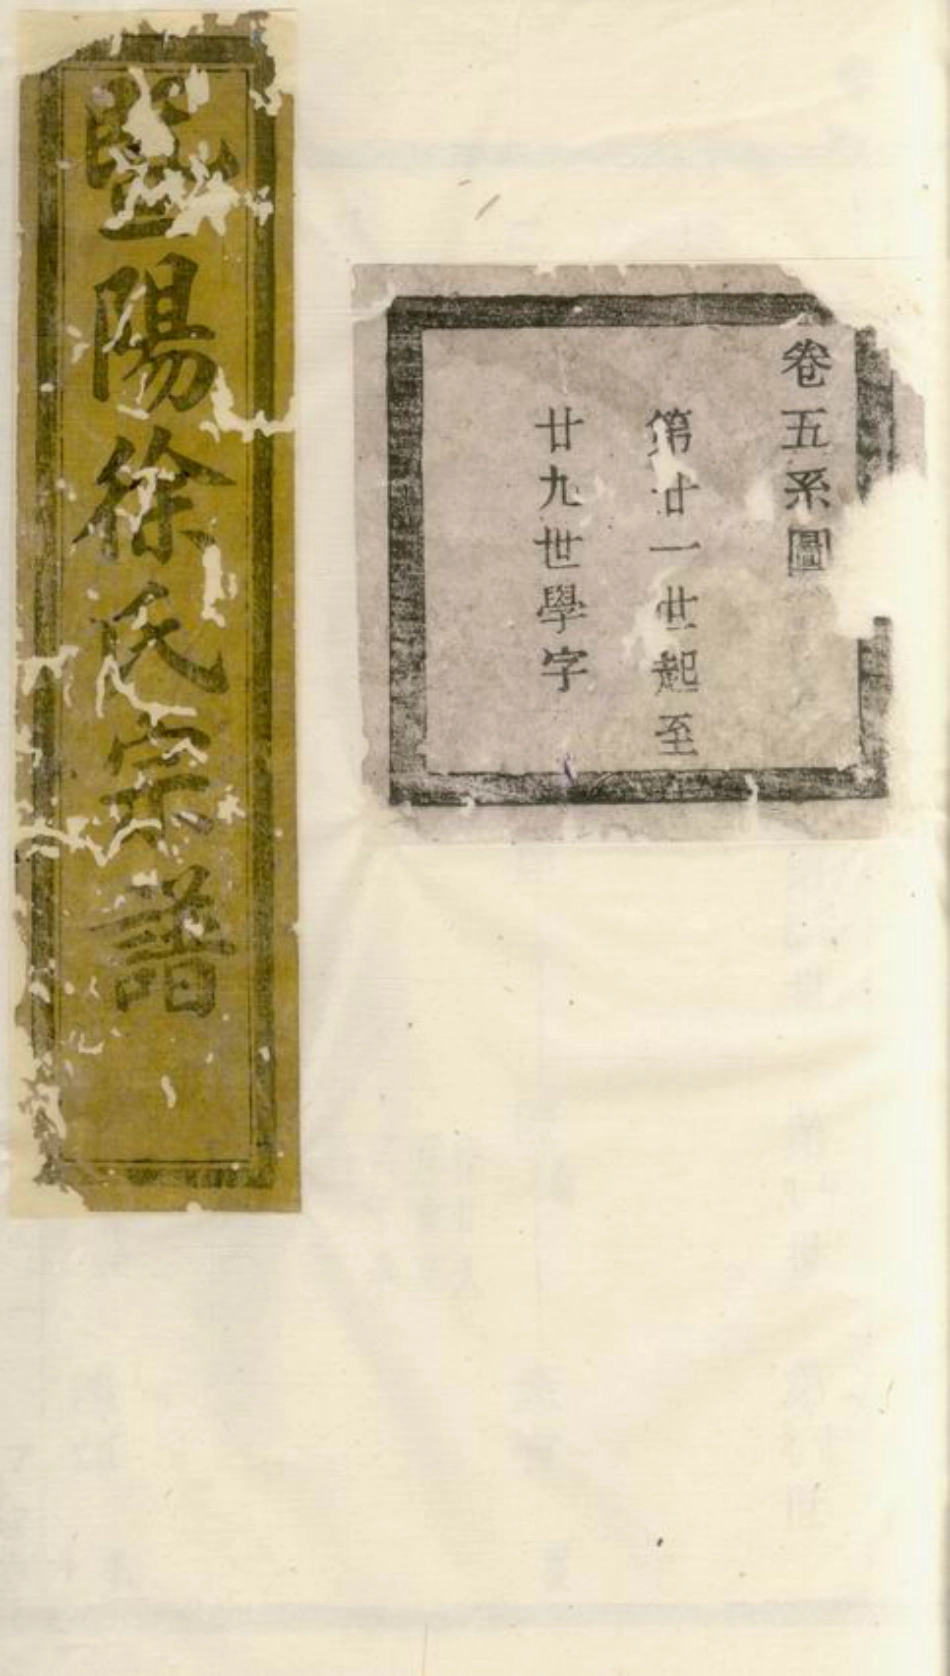 卷五系圖
第廿一世起至
廿九世學字
暨陽徐氏宗譜